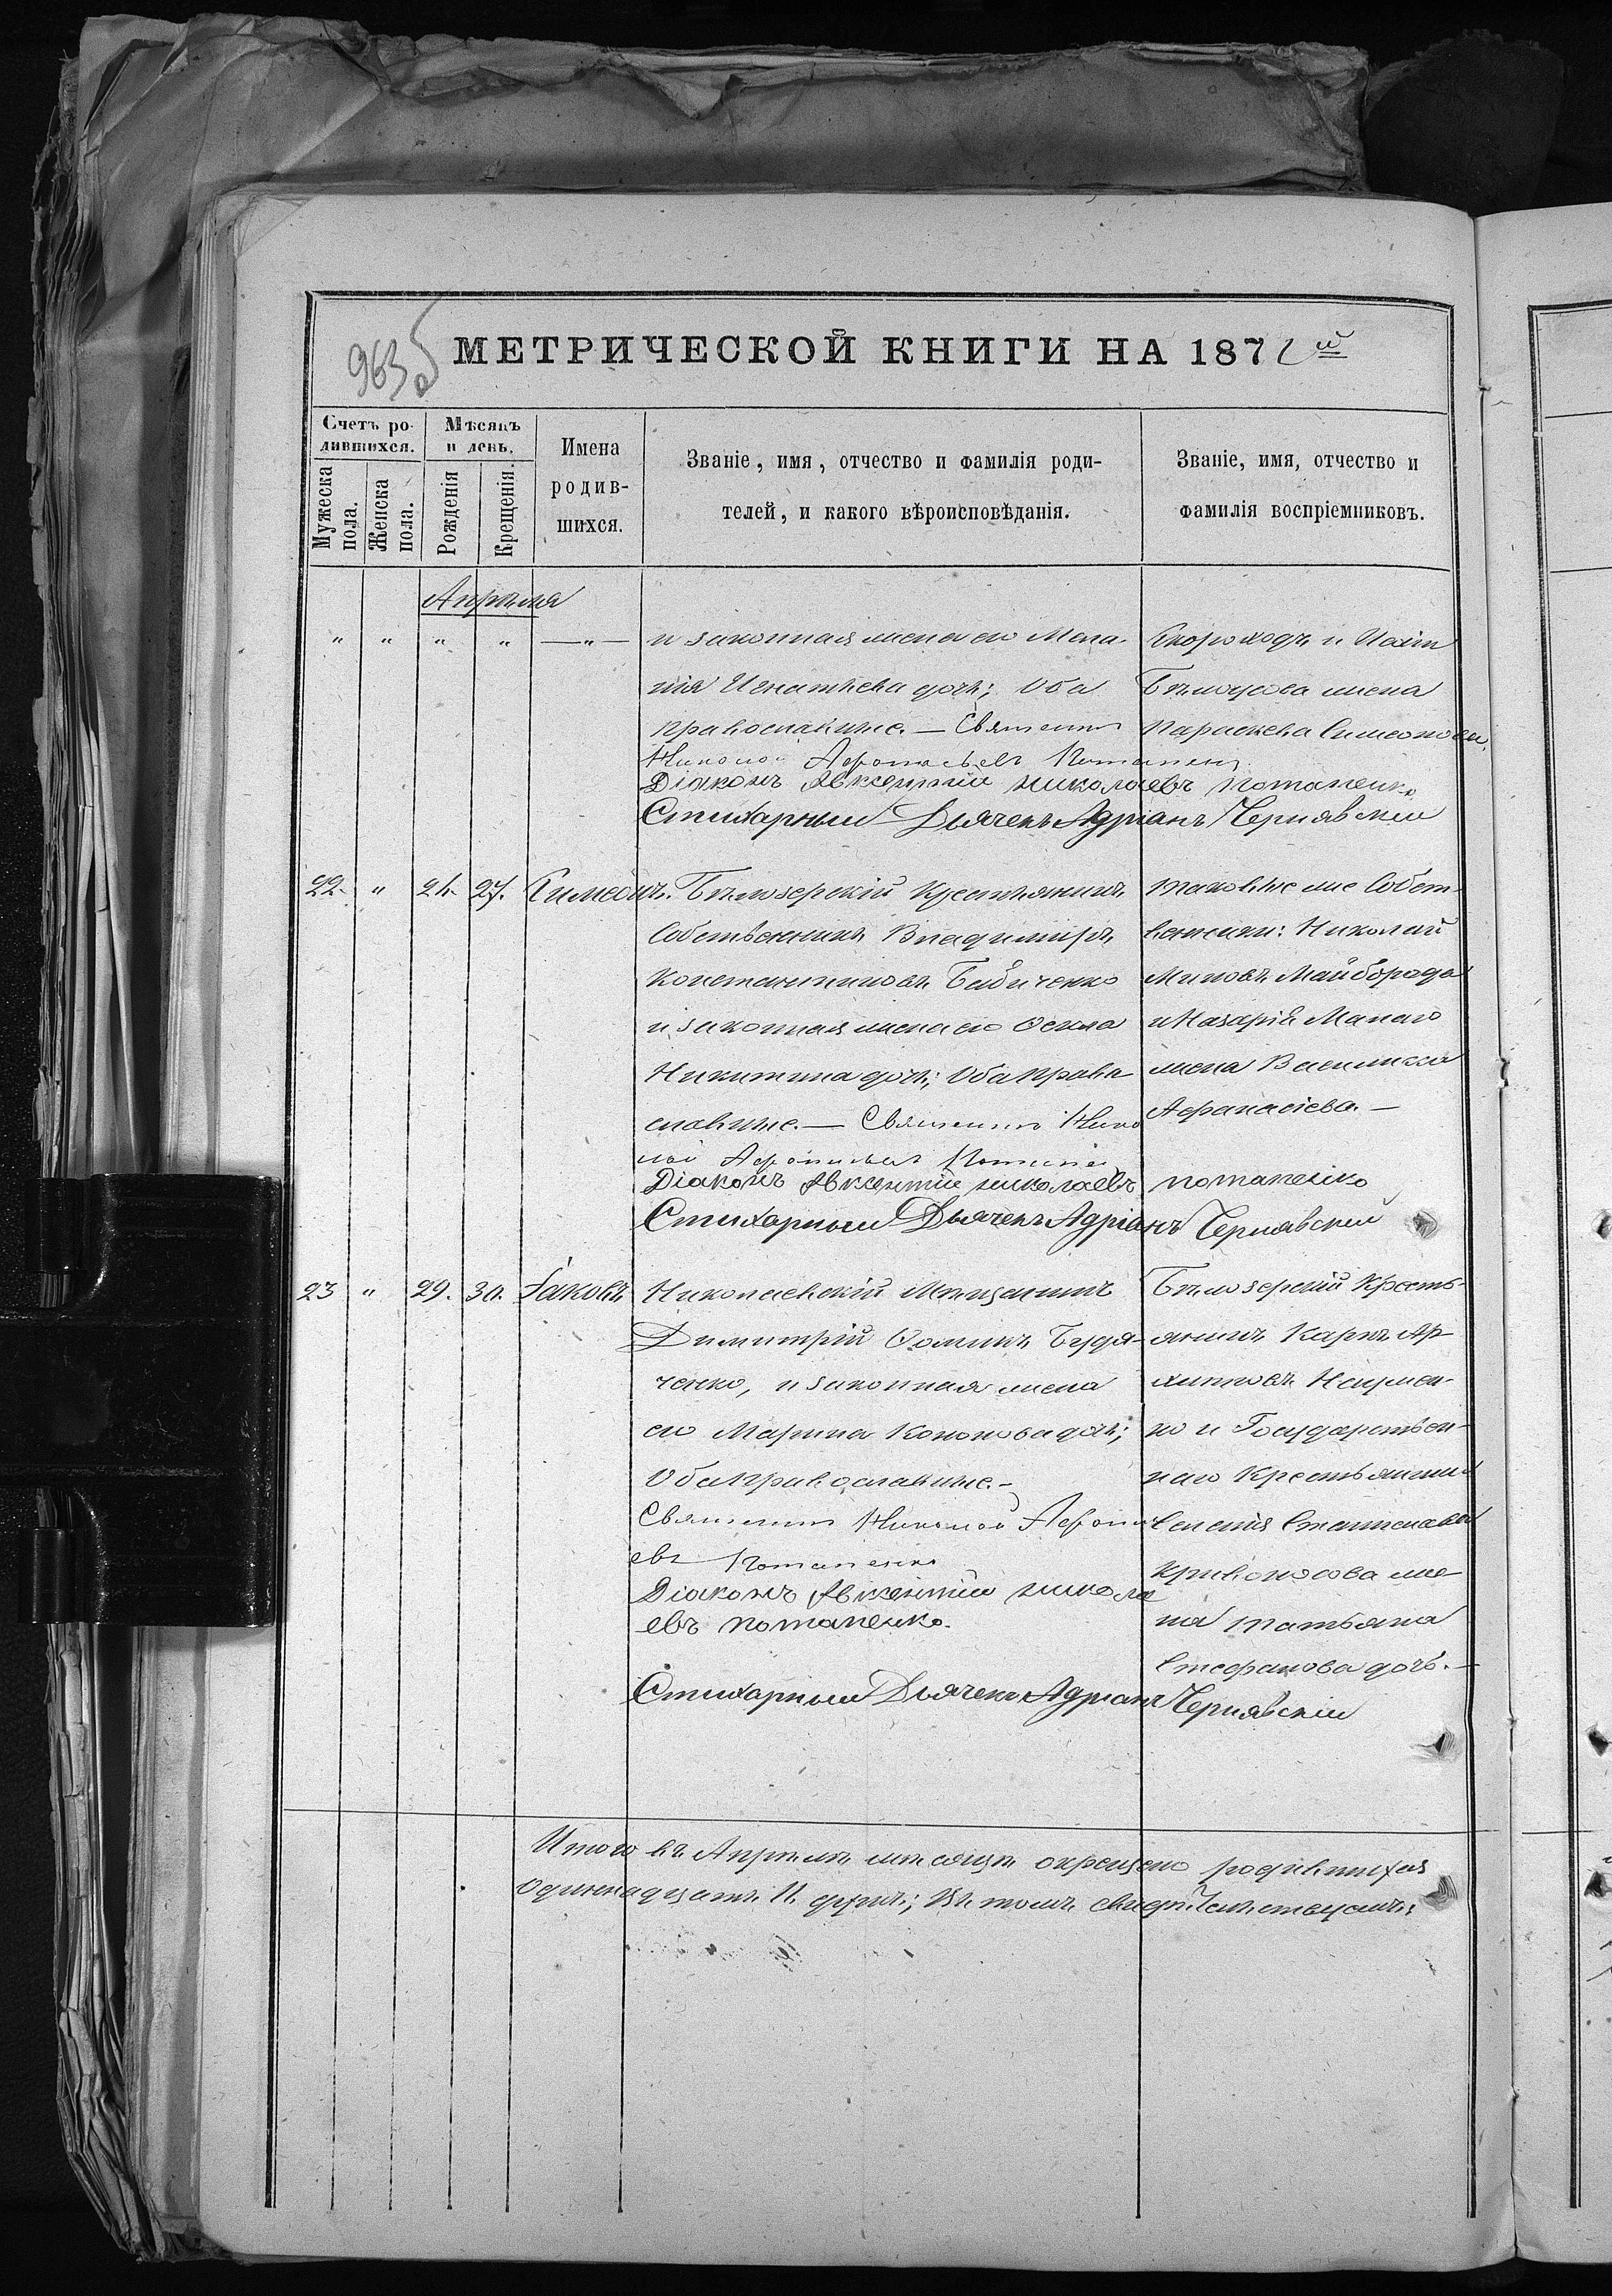 963 б
МЕТРИЧЕСКОЙ КНИГИ НА 187
Счетъ ро-
дившихся.
Мѣсяцъ
и день.
Мужеска
пола.
Женска
пола.
Рожденія
Крещенія.
Имена
родив-
шихся.
Званіе, имя, отчество и фамилія роди-
телей, и какого вѣроисповѣданія.
Званіе, имя, отчество и
фамилія воспріемниковъ.
Апрѣля
" " " " —"— и законная жена его Мела-
нія Игнатьева дочь; Оба
православные. — Священникъ
Николай Афанасьевъ Потапенко
Діаконъ Авксентій николаевъ потапенко
Стихарный Дьячекъ Адріанъ Чернявскій
Скороходъ и
Бѣлоусова жена
Параскева Симеонова.
22. " 24. 27. Симеонъ. Бѣлозерскій Крестьянинъ
Собственникъ Владиміръ
Константиновъ Бабиченко
и законная жена его Фекла
Никитина дочь; Оба Право
славные. — Священникъ Нико
лай Афанасьевъ Потапенко
Діаконъ Авксентій николаевъ потапенко
Стихарный Дьячекъ Адріанъ Чернявскій
таковые же Собст-
венники: Николай
Миновъ Майборода
и Назарія Малаго
жена Василисса
Афанасіева. —
23 " 29. 30. Іаковъ Николаевскій Мѣщанинъ
Димитрій Фоминъ Будя-
ченко, и законная жена
его Марина Кононова дочь;
Оба Православные. —
Священникъ Николай Афанась
евъ Потапенко
Діаконъ Авксентій никола
евъ потапенко.
Стихарный Дьячекъ Адріанъ Чернявскій
Бѣлозерскій Кресть-
янинъ Карпъ Ар-
хиповъ Науmen-
ко и Государствен-
наго Крестьянина
Евгенія Станислава
Кривоносова же-
на Татьяна
Стефанова дочь. —
Итого въ Апрѣлѣ мѣсяцѣ окрещено родившихся
одиннадцать 11. душъ; Въ томъ свидѣтельствуемъ: